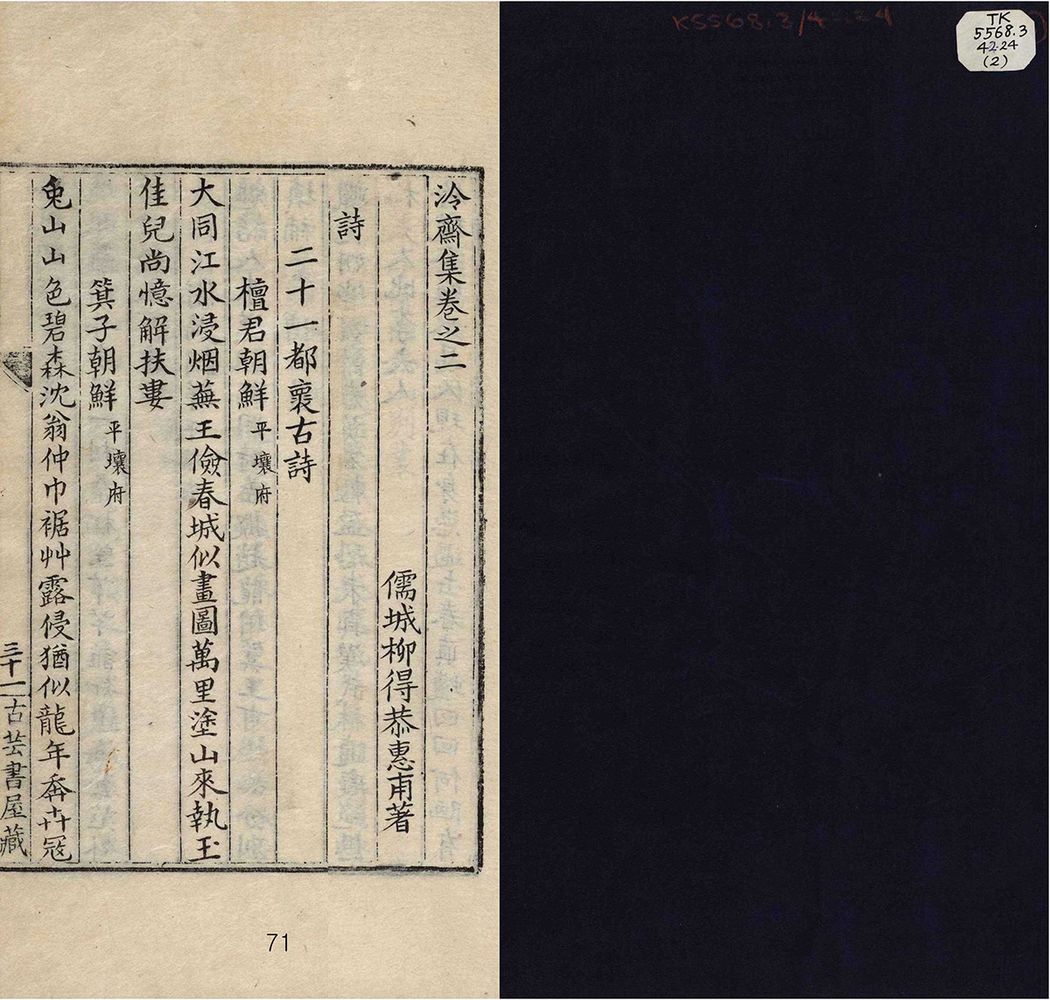 泠齋集卷之二
儒城柳得恭惠甫著
詩
二十一都褱古詩
檀君朝鮮 平壤府
大同江水浸烟蕪王儉春城似畫圖萬里塗山來執玉
佳兒尚憶解扶婁
箕子朝鮮 平壤府
兔山山色碧森沈翁仲巾裾艸露侵猶似龍年奔卉冦
三十一 古芸書屋藏
71
TK
5568.3
42.24
(2)